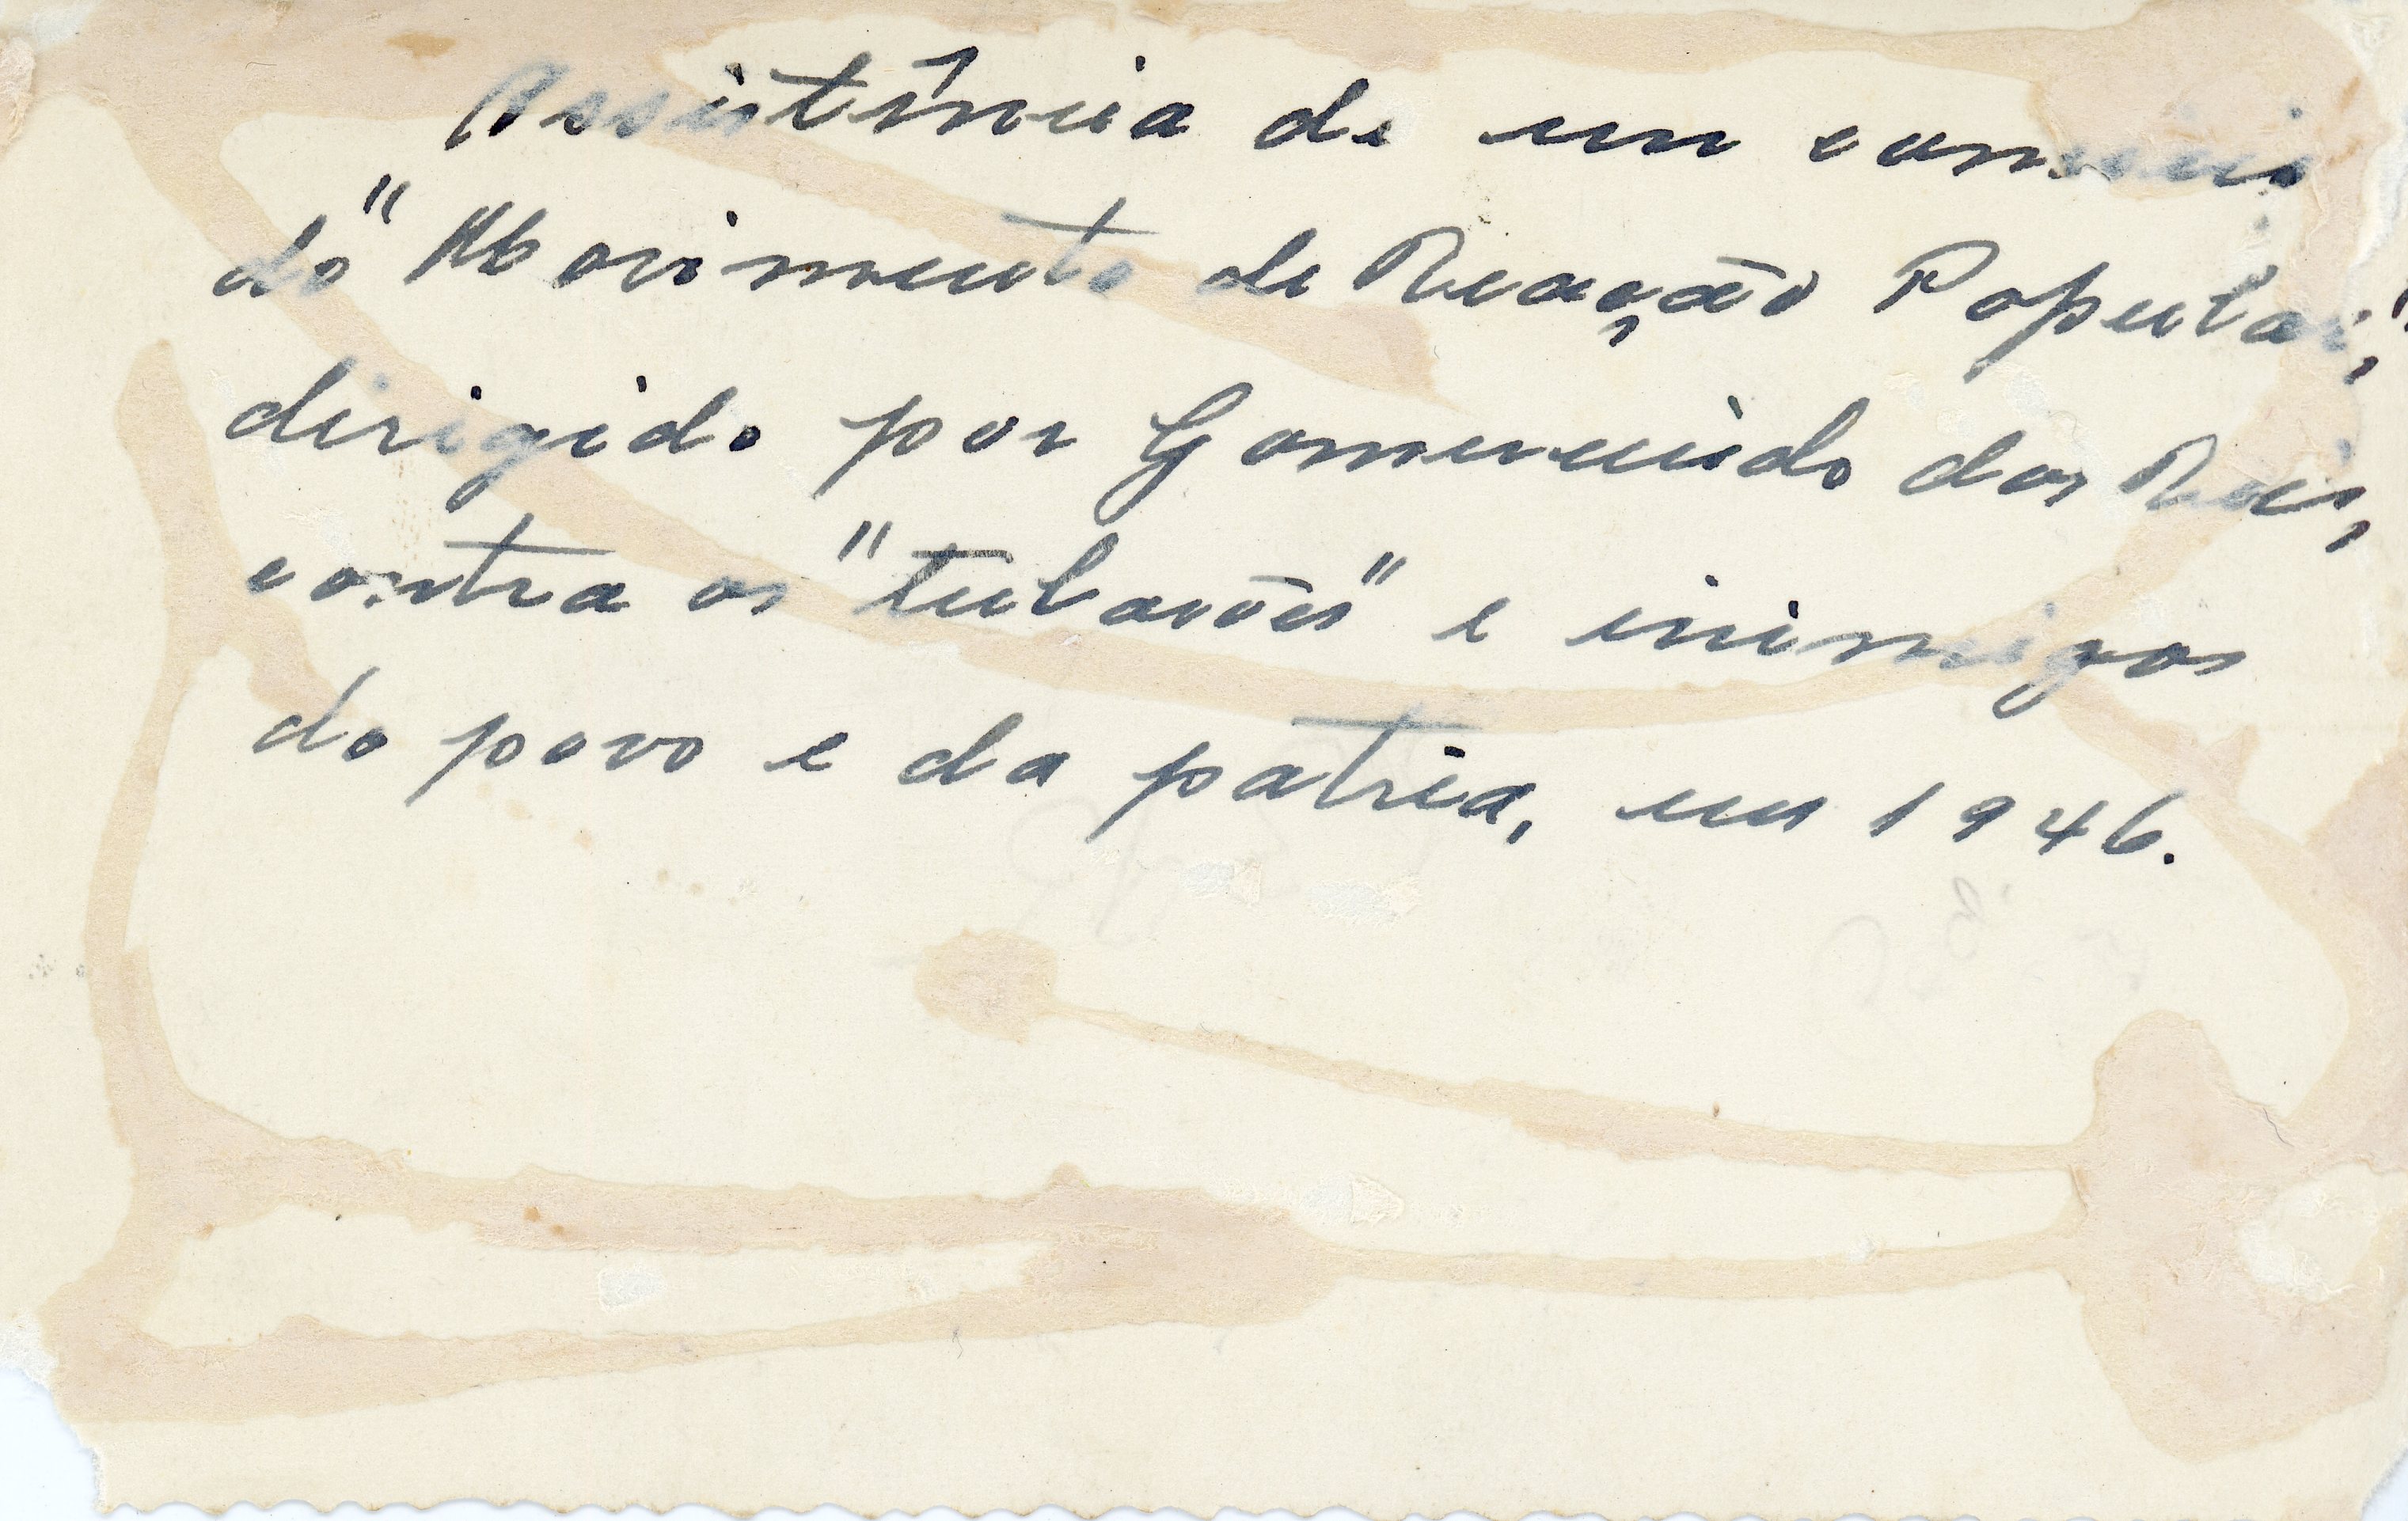 Assistência de um comicio
do "Movimento de Reação Popular,"
dirigido por Gomercindo dos Reis,
contra os "tubarões" e inimigos
do povo e da patria, em 1946.